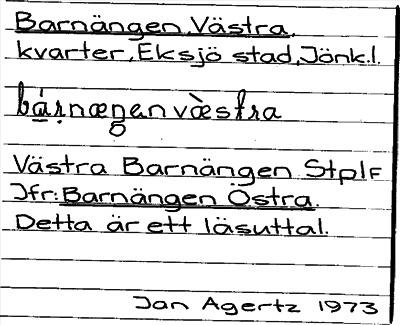 Barnängen, Västra,
kvarter, Eksjö stad, Jönk.l.
bárnæŋen væ̀stra
Västra Barnängen StplF
Jfr: Barnängen Östra.
Detta är ett läsuttal.
Jan Agertz 1973